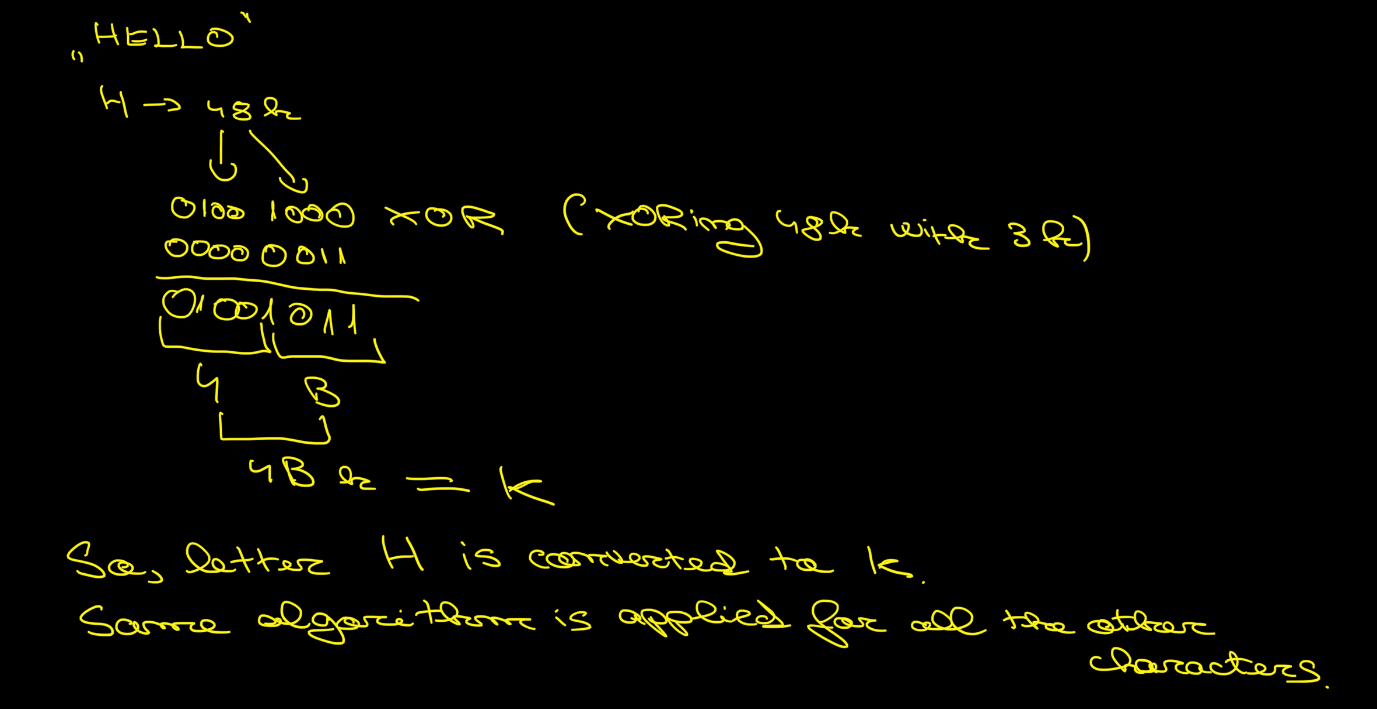 „HELLO"
H → 48h
0100 1000 XOR (XORing 48h with 3h)
0000 0011
01001011
4 B
4Bh = K
So, letter H is converted to K.
Same algorithm is applied for all the other
characters.